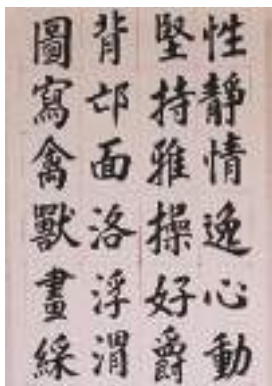 性靜情逸心動
堅持雅操好爵
背邙面洛浮渭
圖寫禽獸畫綵